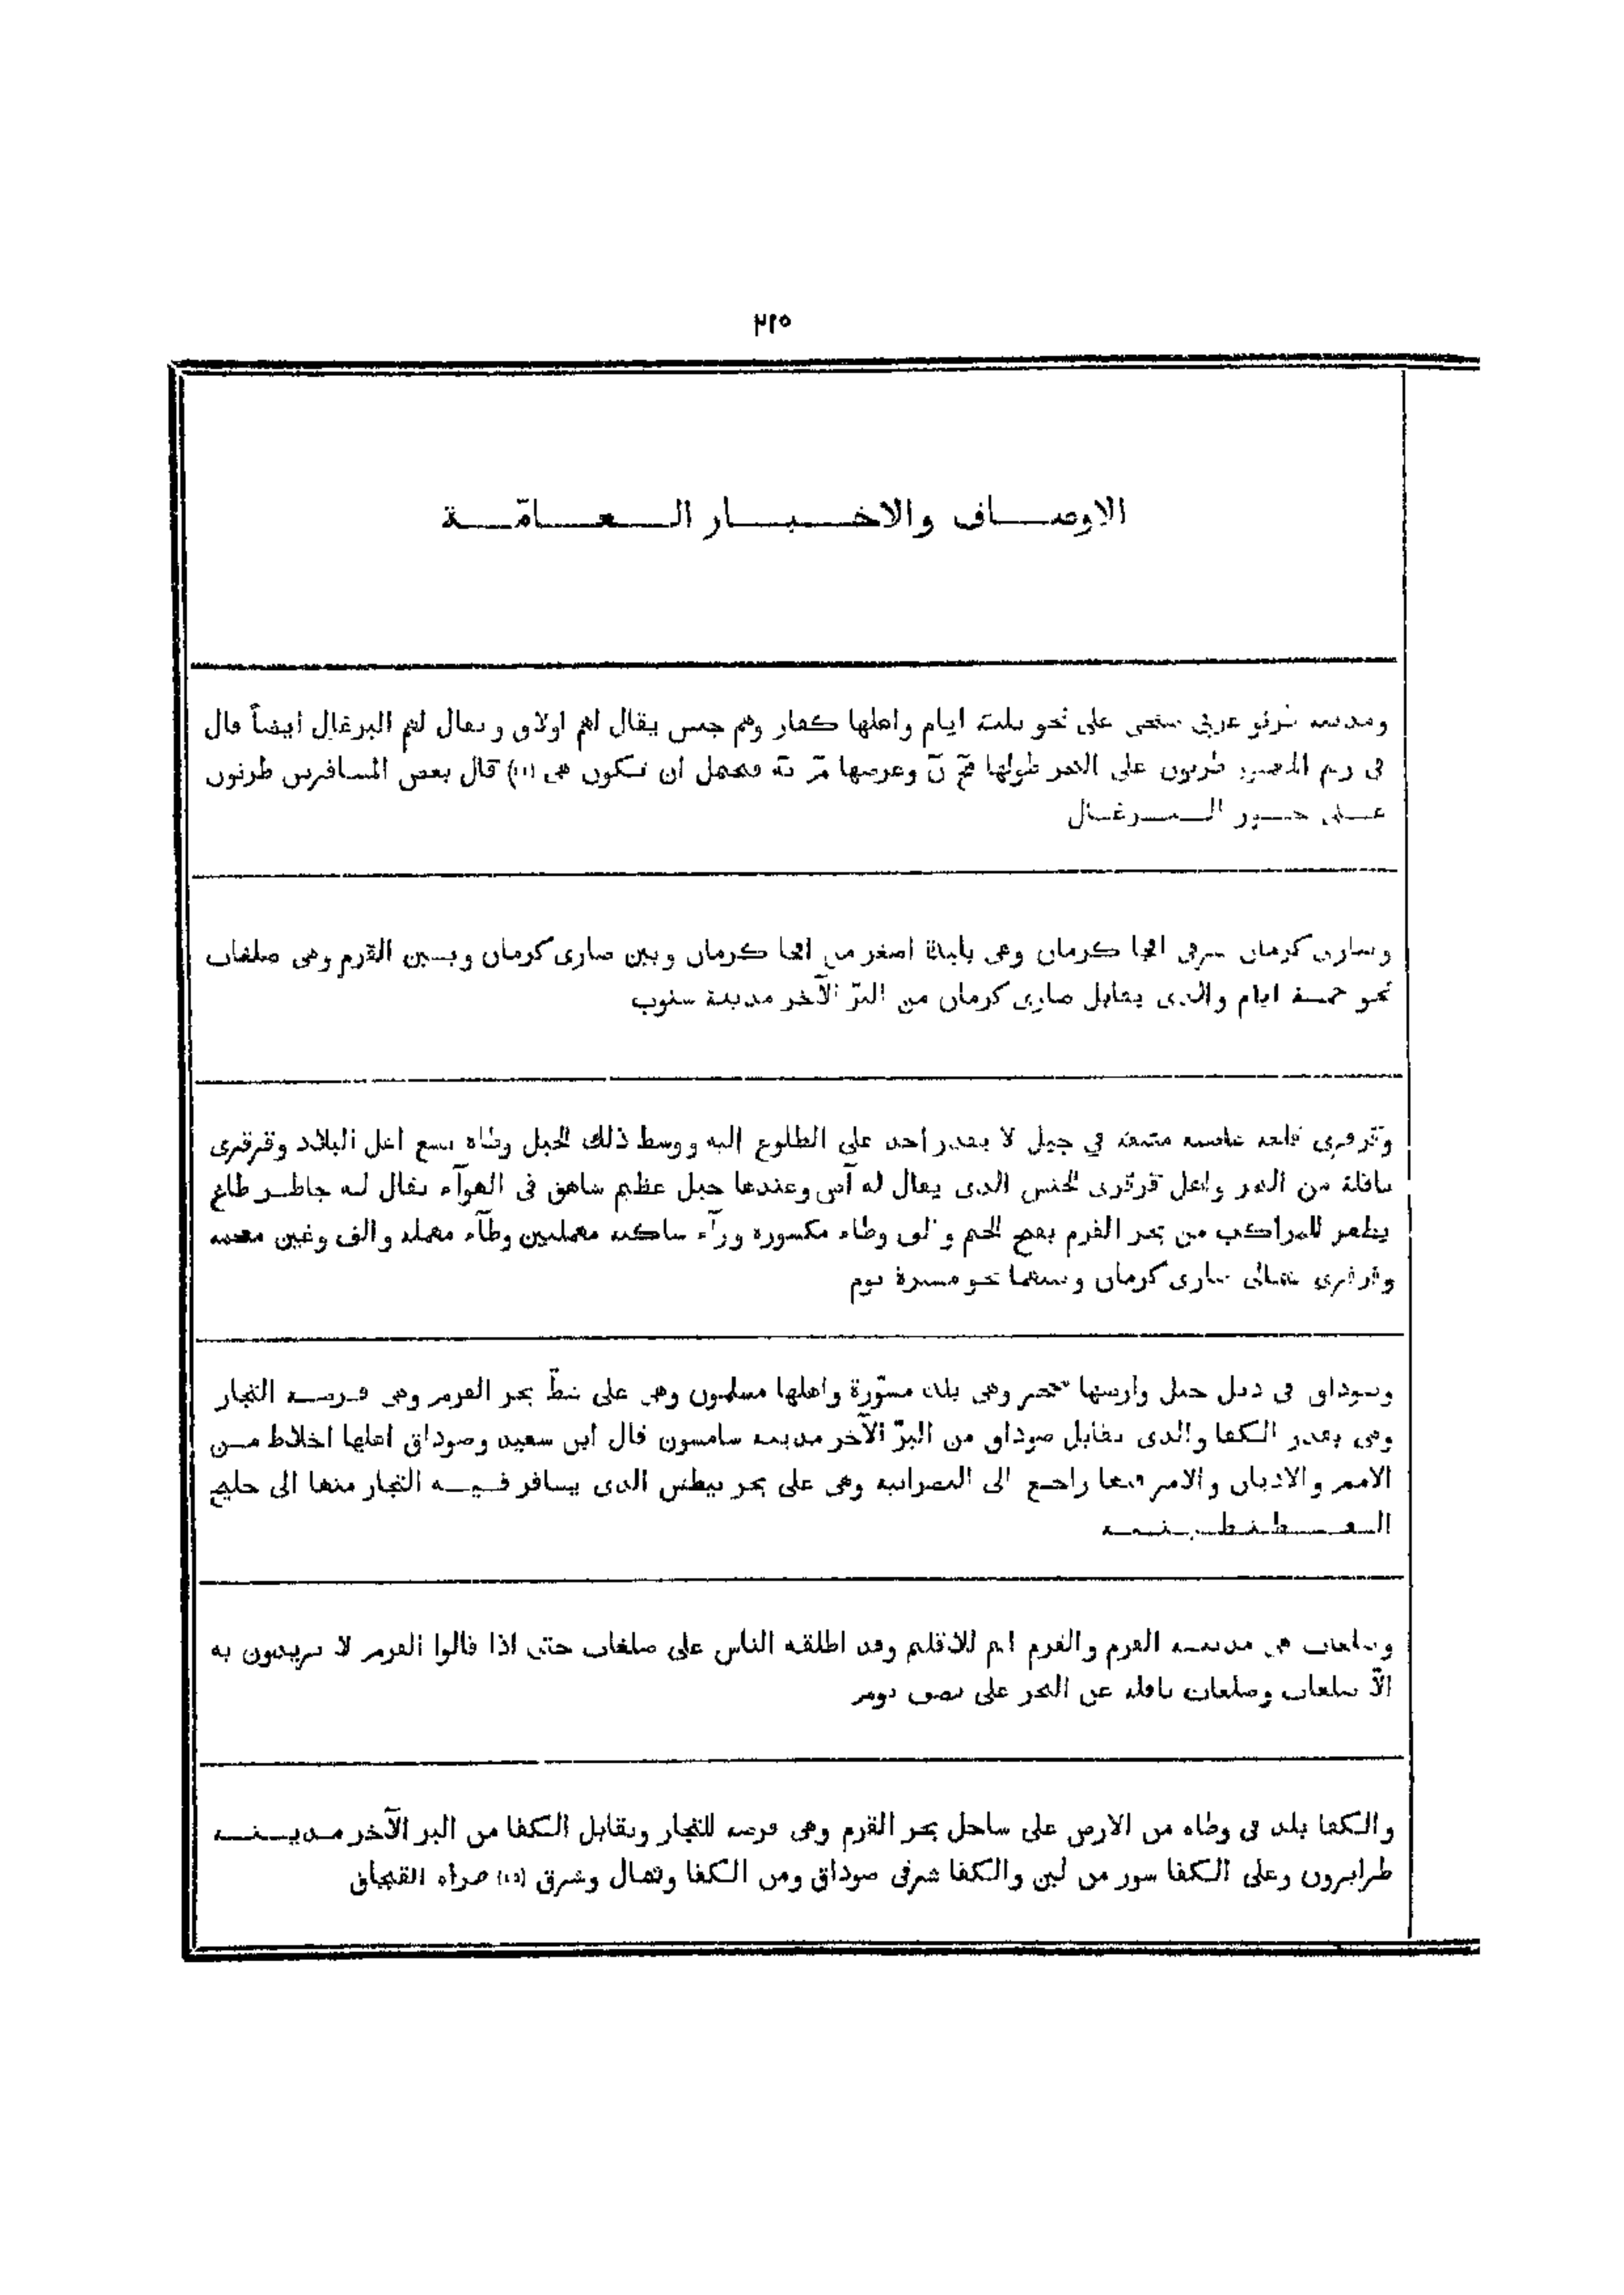 ٢١٥
الاوصاف والاخبار العامّة
ومدينة طرنو غربى صقجى على نحو ثلثة ايام واهلها كفار وهم جنس يقال لهم اولاق ويقال لهم البرغال ايضاً قال
فى رسم المعمور طرنون على البحر طولها وعرضها فيحتمل ان تكون هى قال بعض المسافرين طرنون
على البرغال
وصارى كرمان شرقى اقجا كرمان وهى بليدة اصغر من اقجا كرمان وبين صارى كرمان وبين القرم وهى صلغات
نحو خمسة ايام والذى يقابل صارى كرمان من البرّ الآخر مدينة سنوب
وقرقرى قلعة عاصية منيعة فى جبل لا يقدر احد على الطلوع اليه ووسط ذلك الجبل وطاه تسع اهل البلاد وقرقرى
نافلة من البحر واهل قرقرى الجنس الذى يقال له آص وعندها جبل عظيم شاهق فى الهوآء يقال له جاطر طاغ
يظهر للمراكب من بحر القرم بفتح الجيم والف وطاء مكسورة ورآء ساكنة مهملتين وطآء مهملة والف وغين معجمة
وقرقرى شمالى صارى كرمان وبينهما نحو مسيرة يوم
وصوداق فى ذيل جبل وارضها محجر وهى بلدة مسوّرة واهلها مسلمون وهى على شطّ بحر القرم وهى فرضة التجار
وهى بقدر الكفا والذى يقابل صوداق من البرّ الآخر مدينة سامسون قال ابن سعيد وصوداق اهلها اخلاط من
الامم والاديان والامر فيها راجع الى النصرانية وهى على بحر نيطش الذى يسافر فيه التجار منها الى خليج
القسطنطينية
وصلغات هى مدينة القرم والقرم اسم للاقليم وقد اطلقه الناس على صلغات حتى اذا قالوا القرم لا يريدون به
الّا صلغات وصلغات نافلة عن البحر على نصف يوم
والكفا بلدة فى وطاه من الارض على ساحل بحر القرم وهى فرضة للتجار ويقابل الكفا من البر الآخر مدينة
طرابزون وعلى الكفا سور من لبن والكفا شرقى صوداق ومن الكفا وشمال وشرق صراه القبجاق